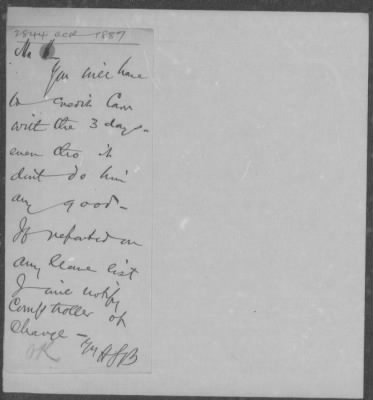 2844 ACP 1887
You will have
to credit Carr
with the 3 days -
even tho it
dont do him
any good -
If reported on
any leave list
I will notify
Comptroller of
Change -
OK